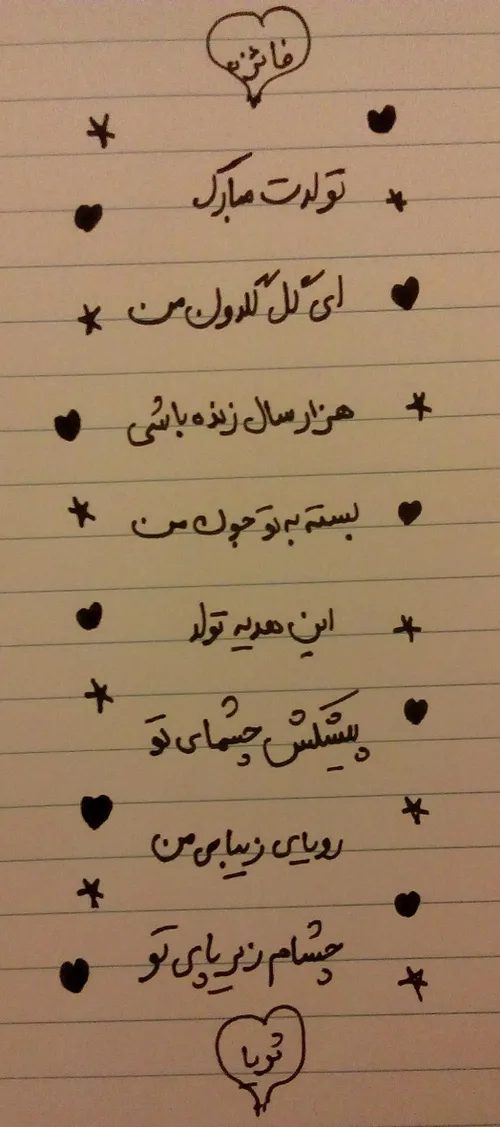 فائزه
تولدت مبارک
ای گل گلدون من
هزار سال زنده باشی
بسته به تو جون من
این هدیه تولد
پیشکش چشمای تو
رویای زیبای من
چشام زیر پای تو
ثریا